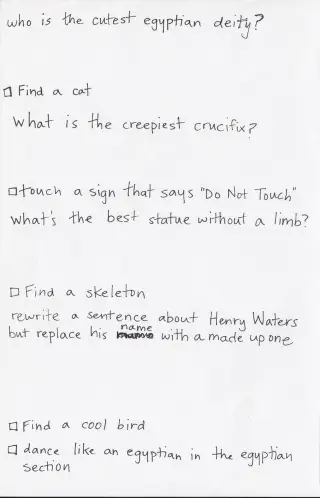 who is the cutest egyptian deity?
Find a cat
What is the creepiest crucifix?
touch a sign that says "Do Not Touch"
what's the best statue without a limb?
Find a skeleton
rewrite a sentence about Henry Waters
but replace his name with a made up one
Find a cool bird
dance like an egyptian in the egyptian
section